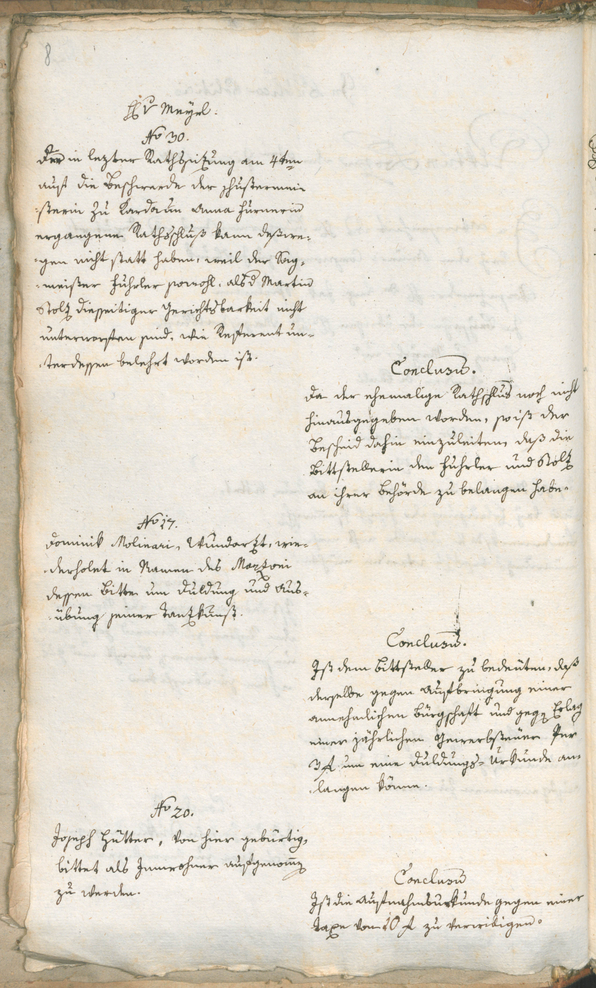 8
Hr v Meyrl.
No 30.
Der in lezter Rathssitzung am 4ten
auf die Beschwerde der schustermei-
sterin zu Kardaun Anna Hürnerin
ergangene Rathschluß kann deßwe-
gen nicht statt haben, weil der Sag-
meister Huhrler sowohl, als d Martin
Stolz diesseitiger Gerichtsbarkeit nicht
unterworfen sind, wie Referent un-
terdessen belehrt worden ist.
Conclusum.
Da der ehemalige Rathschluß noch nicht
hinausgegeben worden, so ist der
Bescheid dahin einzuleiten, daß die
Bittstellerin den Huhrler und Stolz
an ihrer Behörde zu belangen habe.
No 17.
Dominik Molinari, Wundarzt, wie-
derholet in Namen des
dessen Bitte um Duldung und Aus-
übung seiner Tantzkunst.
Conclusum.
Ist dem Bittsteller zu bedeuten, daß
derselbe gegen Aufbringung einer
annehmlichen Bürgschaft und gegen Erlag
einer jährlichen Gewerbsteuer per
3 f um eine Duldungs-Urkunde an-
langen könne.
No 20.
Joseph Hütter, von hier gebürtig,
bittet als Innwohner aufgenommen
zu werden.
Conclusum
Ist die Aufnahmsurkunde gegen einer
Taxe von 10 f zu verwilligen.